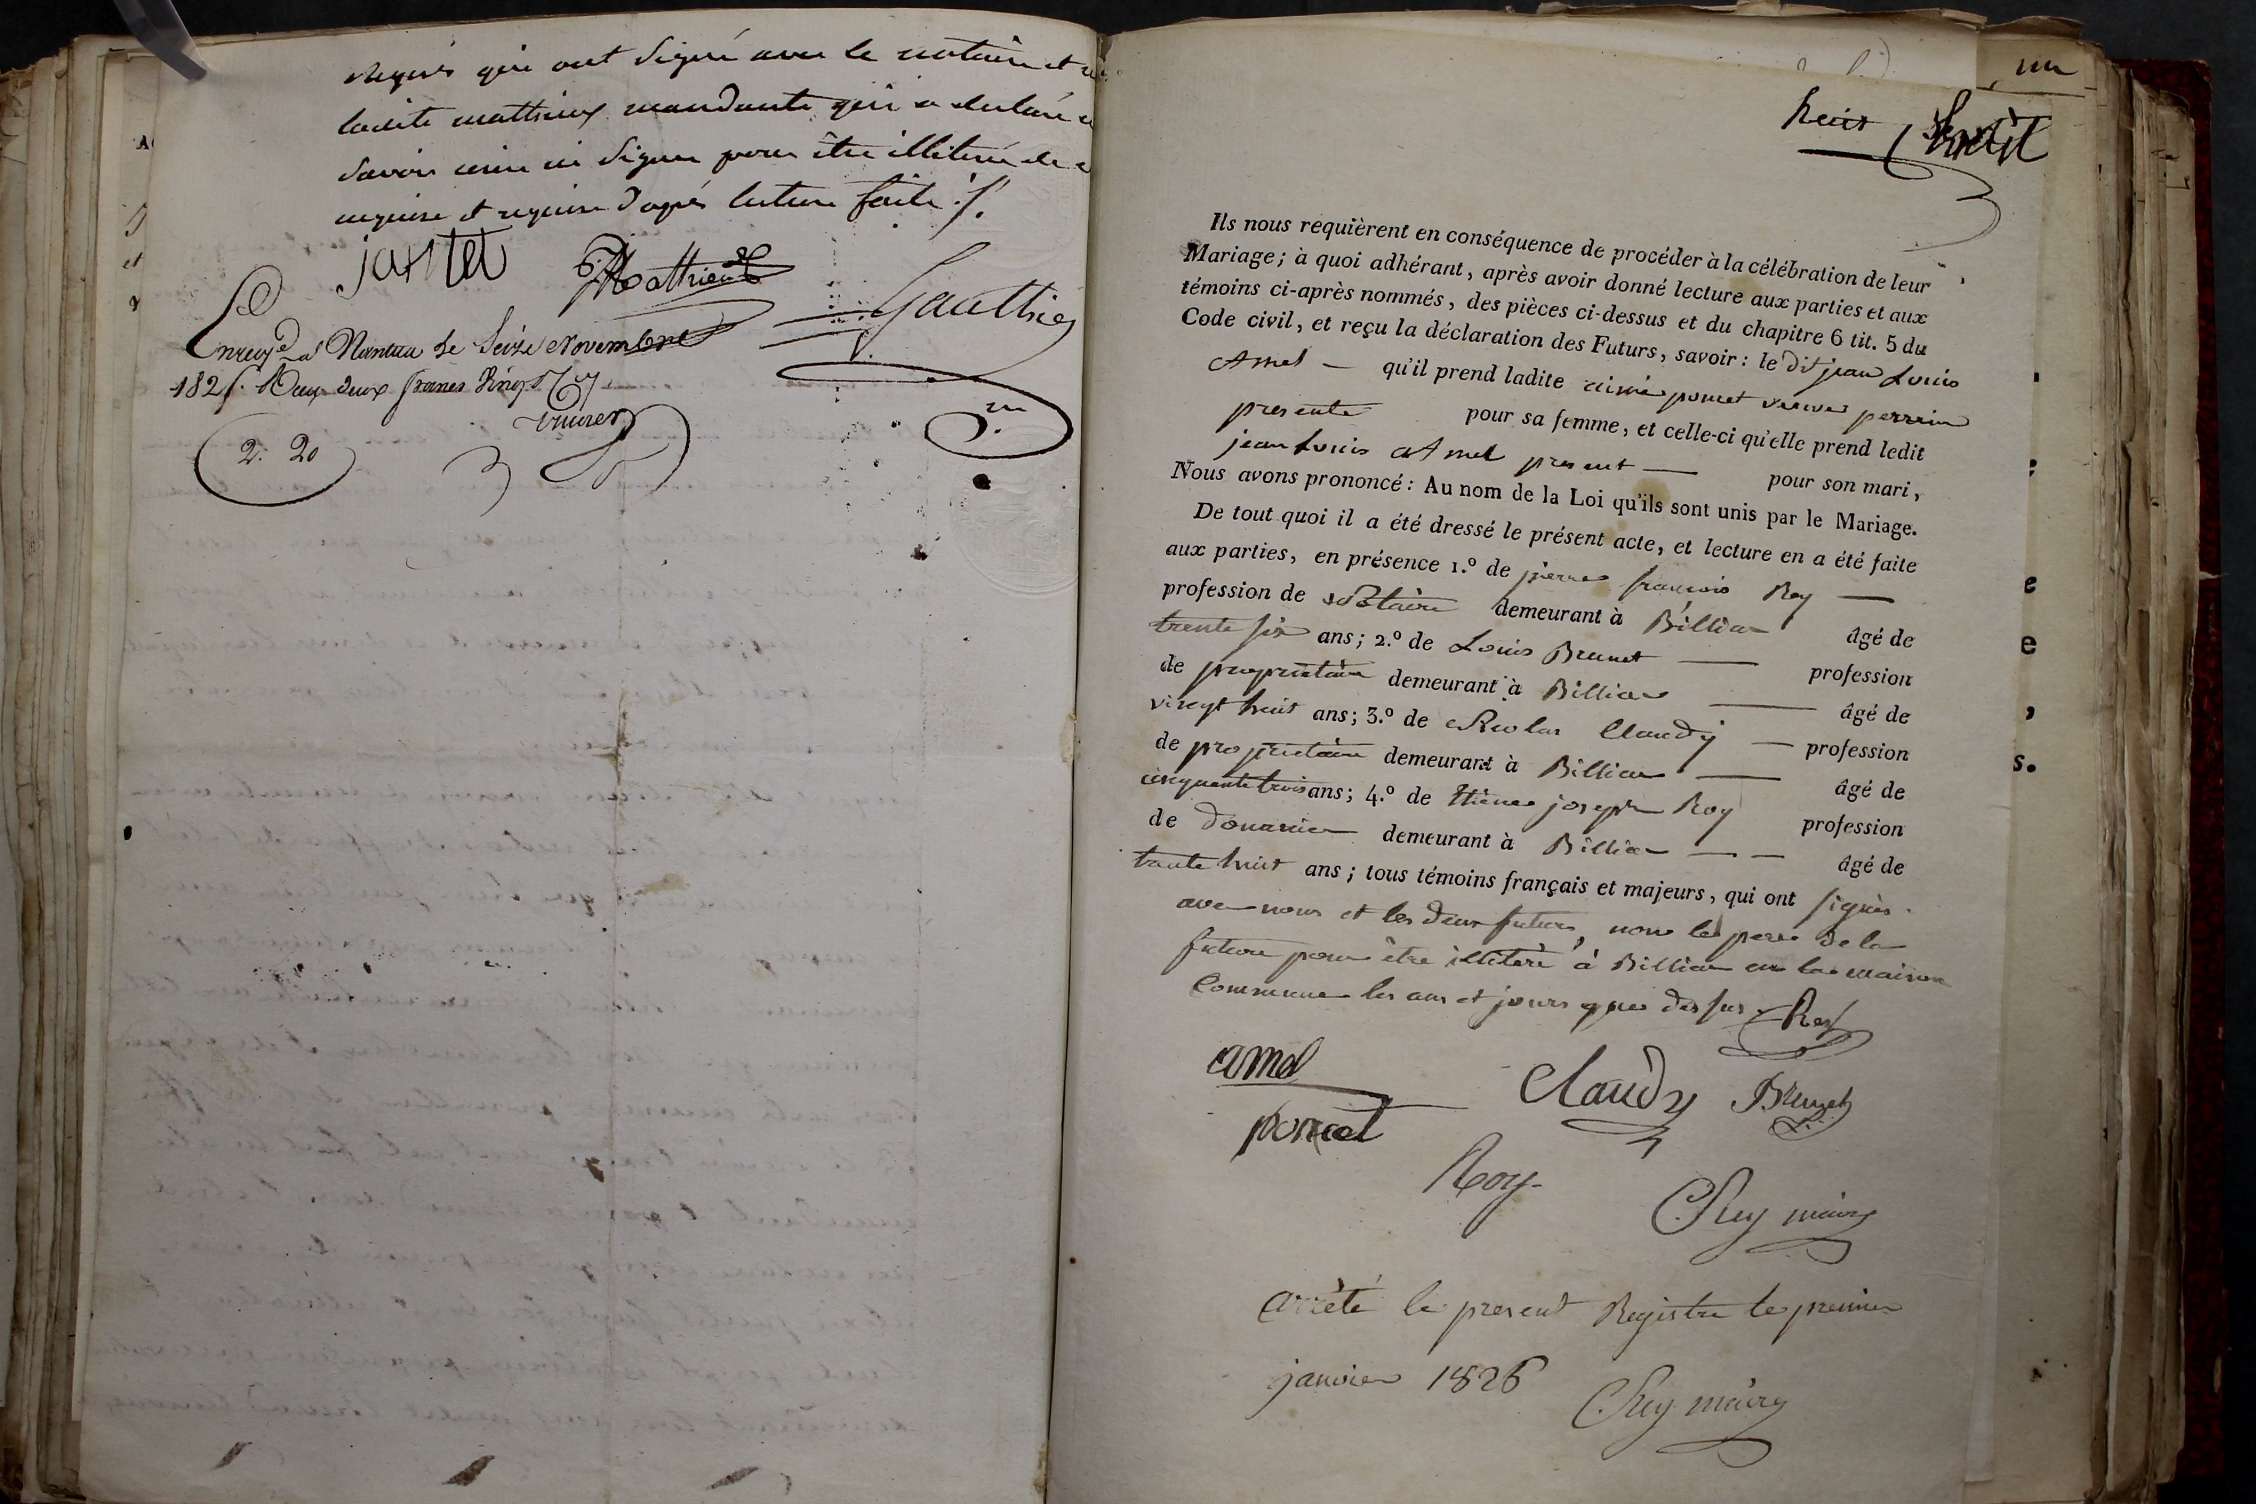 requis qui ont signé avec le notaire et
ladite matthieux mandante qui a declaré
savoir ecrire ni signer pour être illiteré de
enquise et requise d'après lecture faite ./.
jantet Matthieux
Gauthier
Enreg.é à Nantua le Seize Novembre
182 Reçu deux francs vingt
2. 20
huit
Ils nous requièrent en conséquence de procéder à la célébration de leur
Mariage; à quoi adhérant, après avoir donné lecture aux parties et aux
témoins ci-après nommés, des pièces ci-dessus et du chapitre 6 tit. 5 du
Code civil, et reçu la déclaration des Futurs, savoir: le dit jean Louis
Amel — qu'il prend ladite aimée poncet veuve perrin
presente pour sa femme, et celle-ci qu'elle prend ledit
jean Louis Amel present — pour son mari,
Nous avons prononcé: Au nom de la Loi qu'ils sont unis par le Mariage.
De tout quoi il a été dressé le présent acte, et lecture en a été faite
aux parties, en présence 1.º de pierre françois Roy —
profession de Notaire demeurant à Billiat âgé de
trente six ans; 2.º de Louis Brunet — profession
de propriétaire demeurant à Billiat — âgé de
vingt huit ans; 3.º de Nicolas Claudy — profession
de propriétaire demeurant à Billiat — âgé de
cinquante trois ans; 4.º de Etiene joseph Roy profession
de Douanier demeurant à Billiat — — âgé de
trente huit ans; tous témoins français et majeurs, qui ont signés
avec nous et les deux futurs, non le pere de la
future pour être illiteré à Billiat en la maison
Commune les an et jours que dessus. Roy
amel
Claudy Brunet
poncet
Roy
Rey maire
arrèté le present Registre le premier
janvier 1826 Rey maire